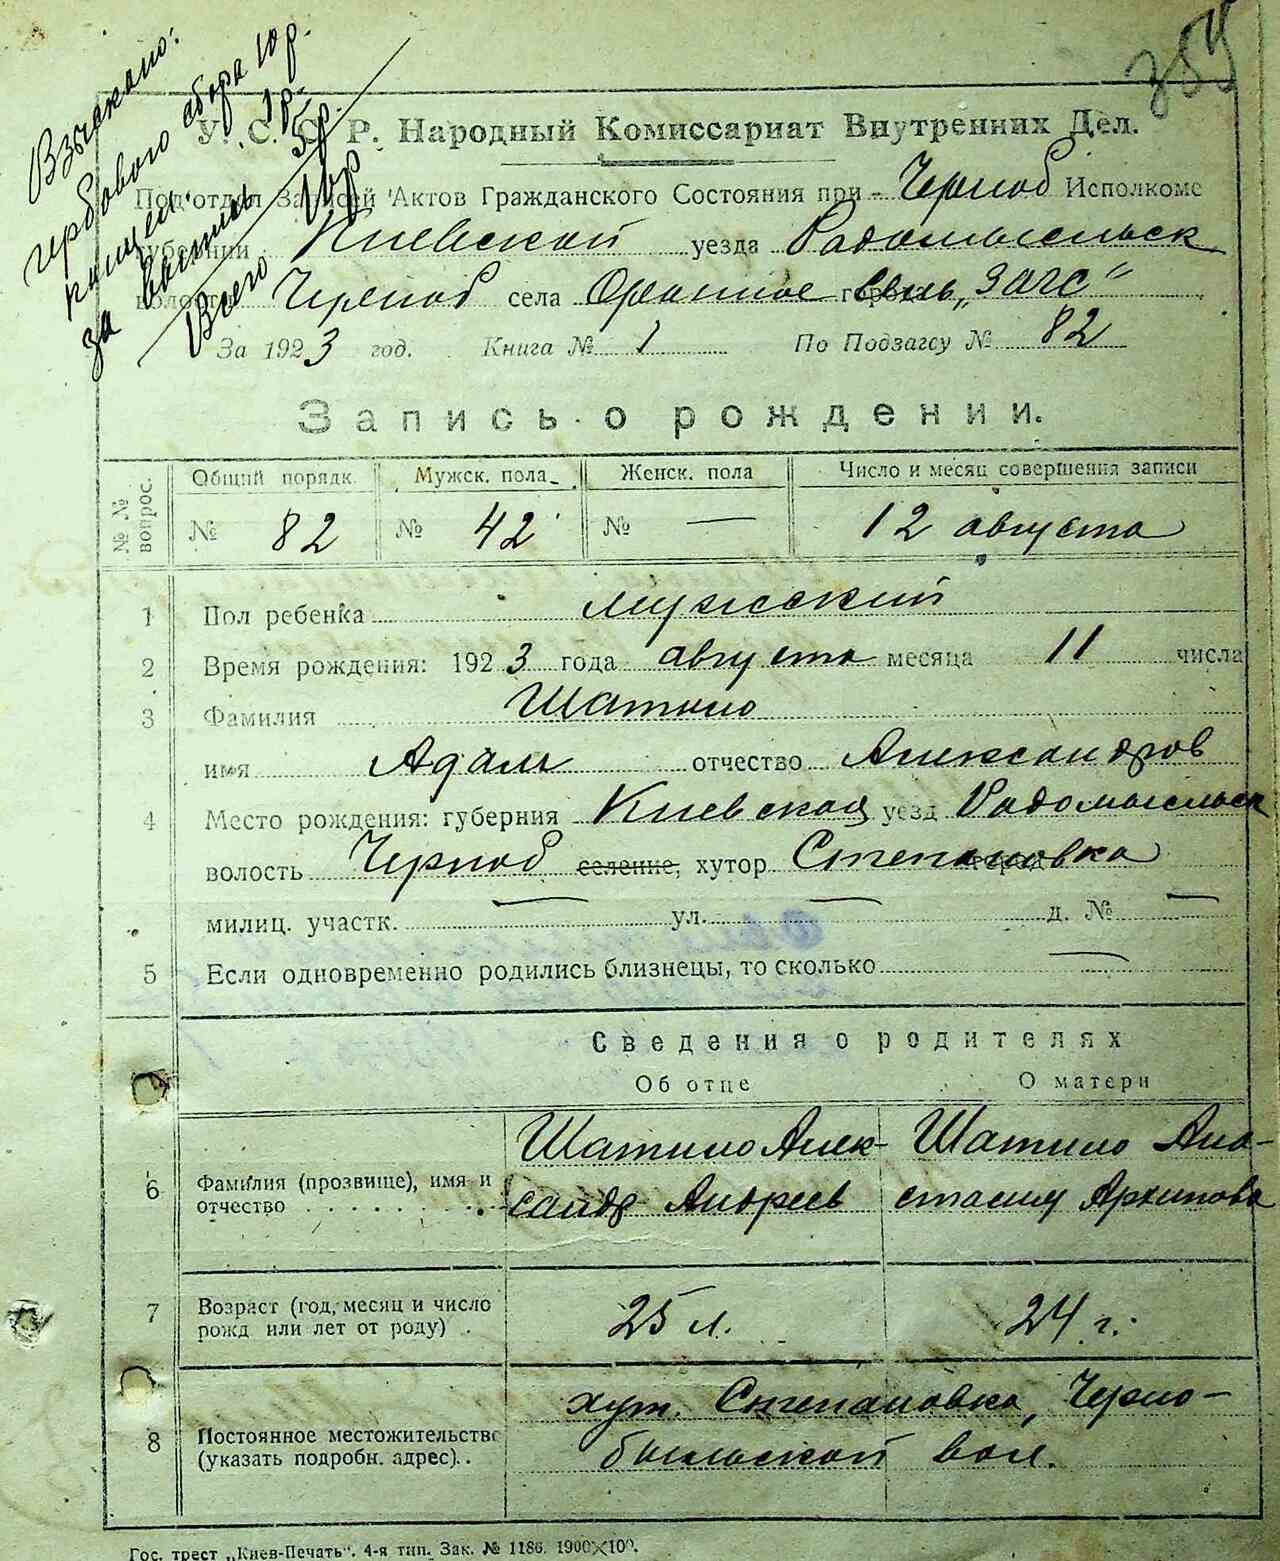 355
Взыскано:
гербового сбора 10 р.
канцел. 1 р.
за бланк 5 р.
Всего 16 р
У. С. С. Р. Народный Комиссариат Внутренних Дел.
Под'отдел Записей Актов Гражданского Состояния при Черноб Исполкоме
губернии Киевской уезда Радомысльск
волости Черноб села Оранное „ЗАГС"
За 1923 год. Книга № 1 По Подзагсу № 82
Запись о рождении.
№ № вопрос. Общий порядк. Мужск. пола Женск. пола Число и месяц совершения записи
№ 82 № 42 № — 12 августа
1 Пол ребенка мужской
2 Время рождения: 1923 года августа месяца 11 числа
3 Фамилия Шатило
имя Адам отчество Александров
4 Место рождения: губерния Киевская уезд Радомысльск
волость Черноб селение, хутор Степановка
милиц. участк. — ул. — д. № —
5 Если одновременно родились близнецы, то сколько —
Сведения о родителях
Об отце О матери
Шатило Алек- Шатило Ана-
6 Фамилия (прозвище), имя и
отчество сандр Андреев стасия Архипова
7 Возраст (год, месяц и число
рожд или лет от роду) . 25 л. 24 г.
хут. Степановка, Черно-
8 Постоянное местожительство
(указать подробн. адрес). . быльской вол.
Гос. трест „Киев-Печать". 4-я тип. Зак. № 1186. 1900×100.